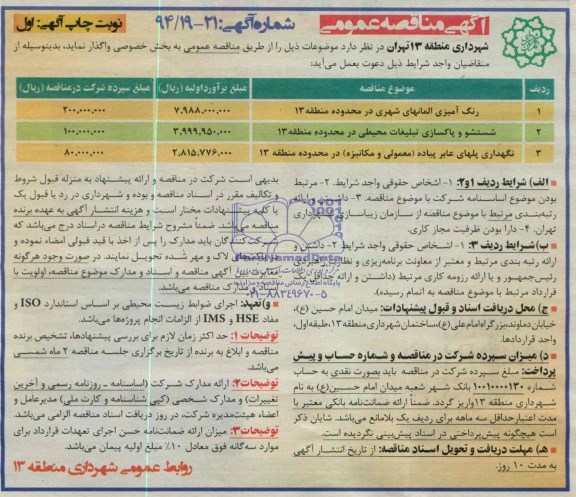 آگهی مناقصه عمومی
شماره آگهی: ۲۱-۹۴/۱۹
نوبت چاپ آگهی: اول
شهرداری منطقه ۱۳ تهران در نظر دارد موضوعات ذیل را از طریق مناقصه عمومی به بخش خصوصی واگذار نماید، بدینوسیله از
متقاضیان واجد شرایط ذیل دعوت بعمل می‌آید:
ردیف موضوع مناقصه مبلغ برآورد اولیه (ریال) مبلغ سپرده شرکت در مناقصه (ریال)
۱ رنگ آمیزی المانهای شهری در محدوده منطقه ۱۳ ۷,۹۸۸,۰۰۰,۰۰۰ ۲۰۰,۰۰۰,۰۰۰
۲ شستشو و پاکسازی تبلیغات محیطی در محدوده منطقه ۱۳ ۳,۹۹۹,۹۵۰,۰۰۰ ۱۰۰,۰۰۰,۰۰۰
۳ نگهداری پلهای عابر پیاده (معمولی و مکانیزه) در محدوده منطقه ۱۳ ۲,۸۱۵,۷۷۶,۰۰۰ ۸۰,۰۰۰,۰۰۰
الف) شرایط ردیف ۱و۲: ۱- اشخاص حقوقی واجد شرایط. ۲- مرتبط
بودن موضوع اساسنامه شرکت با موضوع مناقصه. ۳- داشتن و ارائه
رتبه‌بندی مرتبط با موضوع مناقصه از سازمان زیباسازی شهرداری
تهران. ۴- دارا بودن ظرفیت مجاز کاری.
ب) شرایط ردیف ۳: ۱- اشخاص حقوقی واجد شرایط ۲- داشتن و
ارائه رتبه بندی مرتبط و معتبر از معاونت برنامه‌ریزی و نظارت راهبردی
رئیس‌جمهور و یا ارائه رزومه کاری مرتبط (داشتن و ارائه حداقل یک
قرارداد مرتبط با موضوع مناقصه به اتمام رسیده).
ج) محل دریافت اسناد و قبول پیشنهادات: میدان امام حسین (ع)،
خیابان دماوند، بزرگراه امام علی (ع)، ساختمان شهرداری منطقه ۱۳، طبقه اول،
واحد قراردادها.
د) میزان سپرده شرکت در مناقصه و شماره حساب و پیش
پرداخت: مبلغ سپرده شرکت در مناقصه باید بصورت نقدی به حساب
شماره ۱۰۰۱۰۰۰۰۱۳۰ بانک شهر شعبه میدان امام حسین (ع) به نام
شهرداری منطقه ۱۳ واریز گردد. ضمناً ارائه ضمانت‌نامه بانکی معتبر با
مدت اعتبار حداقل سه ماهه برای ردیف یک بلامانع می‌باشد. شایان ذکر
است هیچگونه پیش‌پرداختی در اسناد پیش‌بینی نگردیده است.
هـ) مهلت دریافت و تحویل اسناد مناقصه: از تاریخ انتشار آگهی
به مدت ۱۰ روز.
بدیهی است شرکت در مناقصه و ارائه پیشنهاد به منزله قبول شروط
و تکالیف مقرر در اسناد مناقصه و بوده و شهرداری در رد یا قبول یک
یا کلیه پیشنهادات مختار است و هزینه انتشار آگهی به عهده برنده
مناقصه می‌باشد. ضمناً مشروح شرایط مناقصه در اسناد درج می‌باشد که
شرکت‌کنندگان باید مدارک را پس از اخذ با قید قبولی امضاء نموده و
لاک و مهر شده تحویل نمایند. در صورت وجود هرگونه
آگهی مناقصه و اسناد و مدارک موضوع مناقصه، اولویت با
اسناد و مدارک مناقصه می‌باشد.
و) تعهد: اجرای ضوابط زیست محیطی بر اساس استاندارد ISO و
مفاد HSE و IMS از الزامات انجام پروژه‌ها می‌باشد.
توضیحات ۱: حد اکثر زمان لازم برای بررسی پیشنهادها، تشخیص برنده
مناقصه و ابلاغ به برنده از تاریخ برگزاری جلسه مناقصه ۲ ماه شمسی
می‌باشد.
توضیحات ۲: ارائه مدارک شرکت (اساسنامه - روزنامه رسمی و آخرین
تغییرات) و مدارک شخصی (کپی شناسنامه و کارت ملی) مدیرعامل و
اعضاء هیئت‌مدیره شرکت، در روز دریافت اسناد مناقصه الزامی می‌باشد.
توضیحات ۳: میزان ارائه ضمانت‌نامه حسن اجرای تعهدات قرارداد برای
موارد سه‌گانه فوق معادل ۱۰٪ مبلغ اولیه پیمان می‌باشد.
روابط عمومی شهرداری منطقه ۱۳
پایگاه اطلاع رسانی مناقصه و مزایده
۰۲۱-۸۸۳۴۹۶۷۰-۵